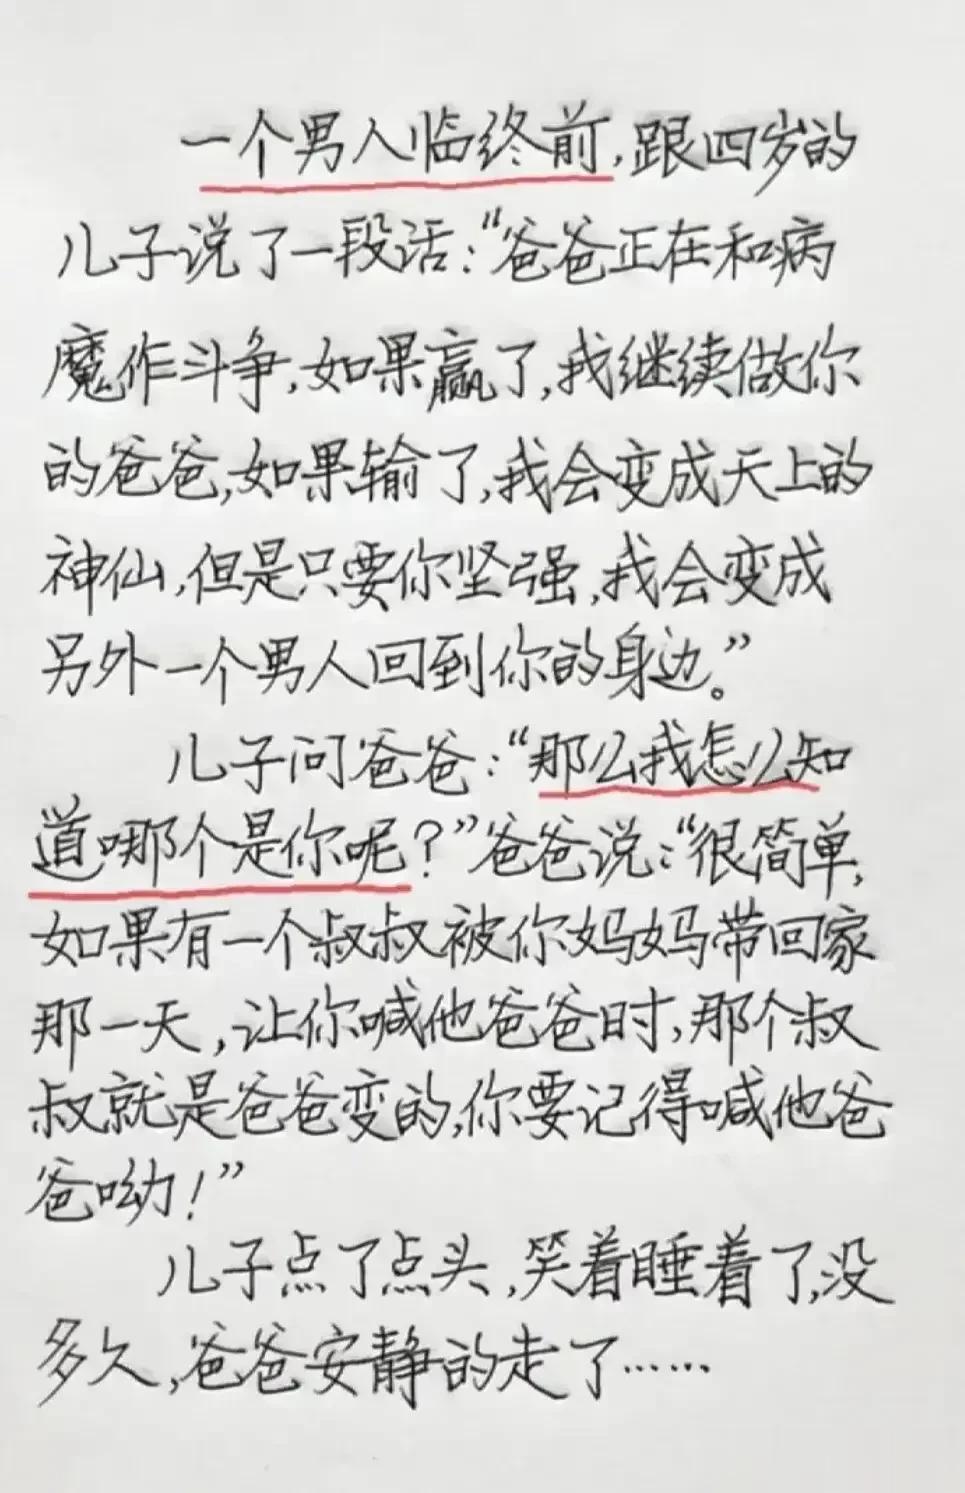 一个男人临终前,跟四岁的
儿子说了一段话:“爸爸正在和病
魔作斗争,如果赢了,我继续做你
的爸爸,如果输了,我会变成天上的
神仙,但是只要你坚强,我会变成
另外一个男人回到你的身边。”
儿子问爸爸:“那么我怎么知
道哪个是你呢?”爸爸说:“很简单,
如果有一个叔叔被你妈妈带回家
那一天,让你喊他爸爸时,那个叔
叔就是爸爸变的,你要记得喊他爸
爸呦!”
儿子点了点头,笑着睡着了,没
多久,爸爸安静的走了……